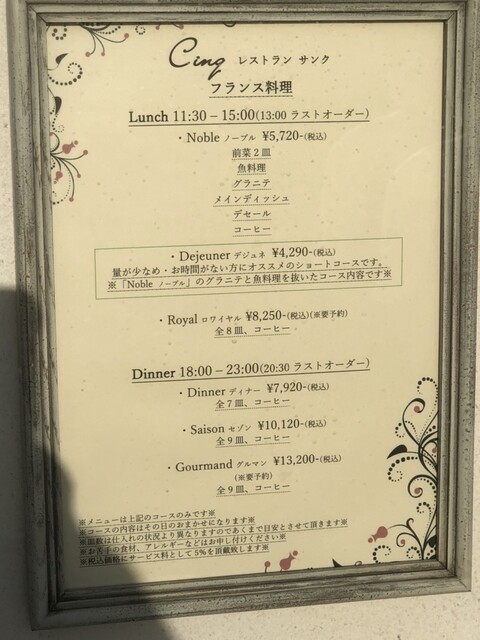 Cinq レストラン サンク
フランス料理
Lunch 11:30 – 15:00(13:00 ラストオーダー)
・Noble ノーブル ¥5,720-(税込)
前菜２皿
魚料理
グラニテ
メインディッシュ
デセール
コーヒー
・Dejeuner デジュネ ¥4,290-(税込)
量が少なめ・お時間がない方にオススメのショートコースです。
※「Noble ノーブル」のグラニテと魚料理を抜いたコース内容です※
・Royal ロワイヤル ¥8,250-(税込)(※要予約)
全８皿、コーヒー
Dinner 18:00 – 23:00(20:30 ラストオーダー)
・Dinner ディナー ¥7,920-(税込)
全７皿、コーヒー
・Saison セゾン ¥10,120-(税込)
全９皿、コーヒー
・Gourmand グルマン ¥13,200-(税込)
(※要予約)
全９皿、コーヒー
※メニューは上記のコースのみです※
※コースの内容はその日のおまかせになります※
※皿数は仕入れの状況より異なりますのであくまで目安とさせて頂きます※
※お苦手の食材、アレルギーなどはお申し付けください※
※税込価格にサービス料として5%を頂戴致します※